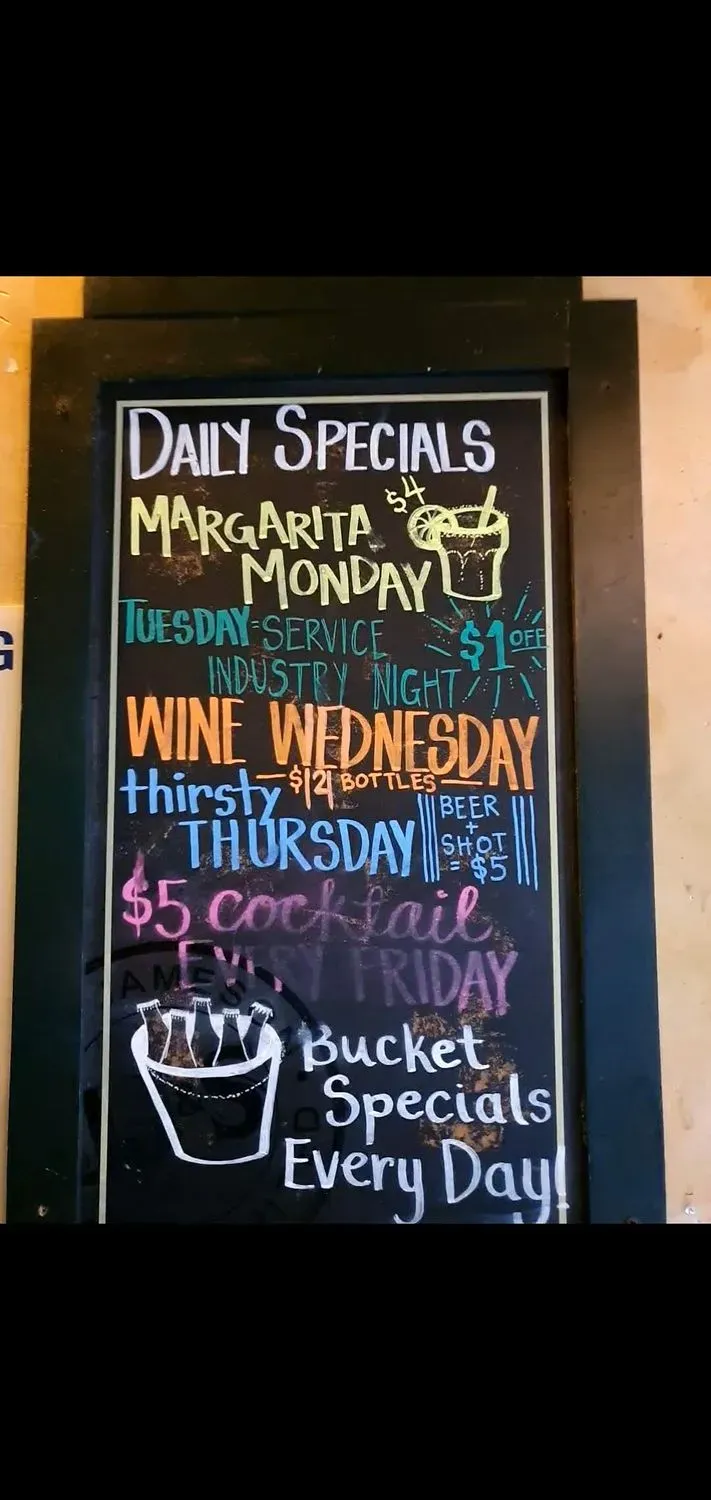 DAILY SPECIALS
MARGARITA $4
MONDAY
TUESDAY=SERVICE $1 OFF
INDUSTRY NIGHT
WINE WEDNESDAY
$12 BOTTLES
thirsty
THURSDAY
BEER
+
SHOT
= $5
$5 cocktail
EVERY FRIDAY
JAMESON
Bucket
Specials
Every Day!
G